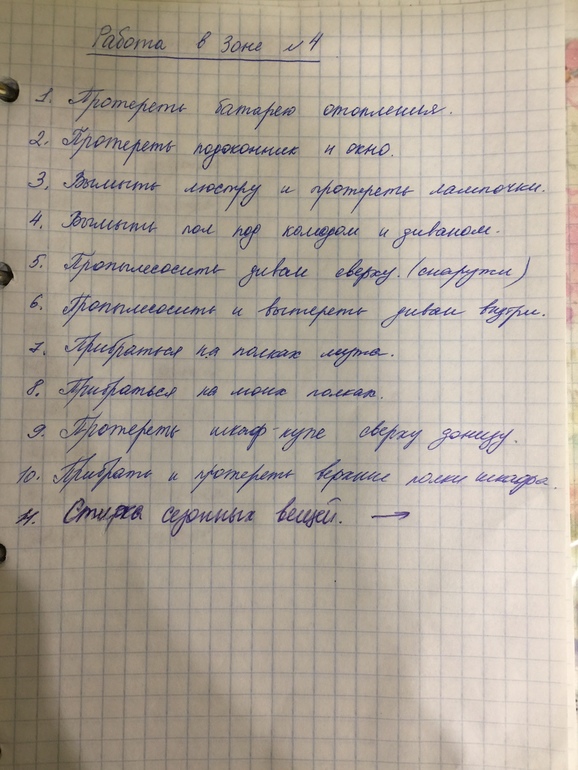 Работа в Зоне №4
1. Протереть батарею отопления.
2. Протереть подоконник и окно.
3. Вымыть люстру и протереть лампочки.
4. Вымыть пол под комодом и диваном.
5. Пропылесосить диван сверху. (снаружи)
6. Пропылесосить и вытереть диван внутри.
7. Прибраться на полках мужа.
8. Прибраться на моих полках.
9. Протереть шкаф-купе сверху донизу.
10. Прибрать и протереть верхние полки шкафа.
11. Стирка сезонных вещей. →